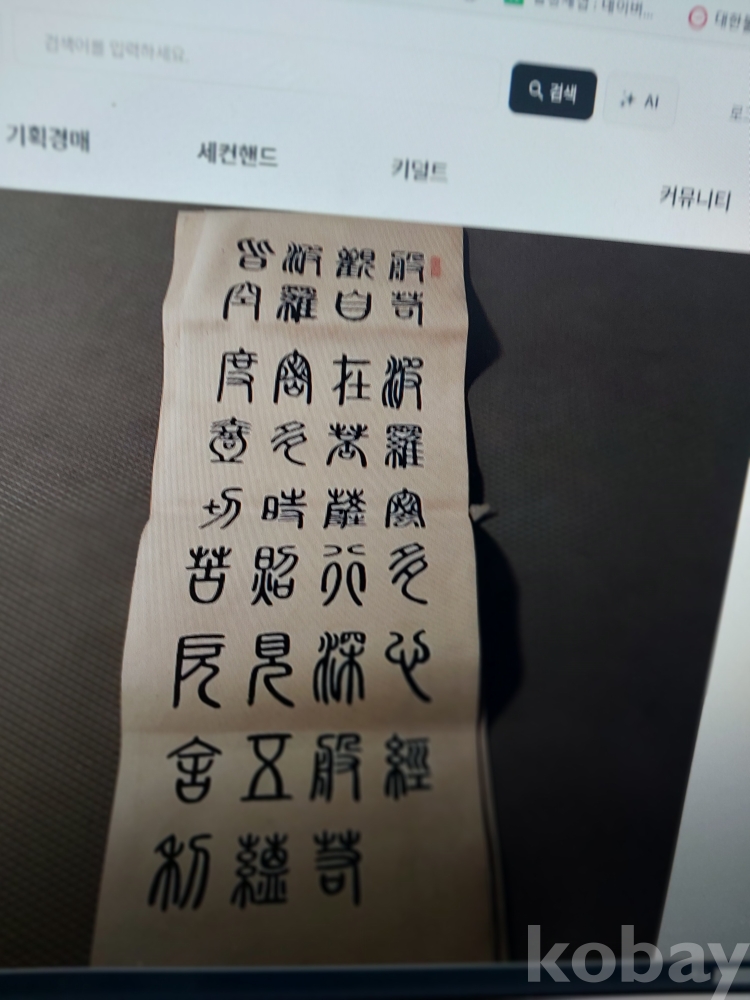 네이버...
검색어를 입력하세요.
검색
AI
기획경매
세컨핸드
키덜트
커뮤니티
般若波羅密多心經
觀自在菩薩行深般若
波羅密多時照見五蘊
皆空度壹切苦厄舍利
kobay